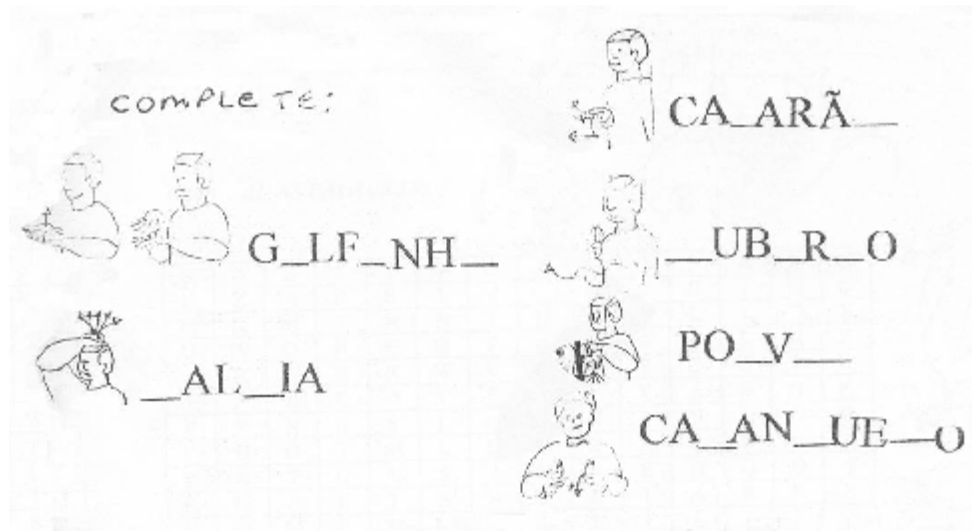 COMPLETE:
G_LF_NH_
_AL_IA
CA_ARÃ_
_UB_R_O
PO_V_
CA_AN_UE_O